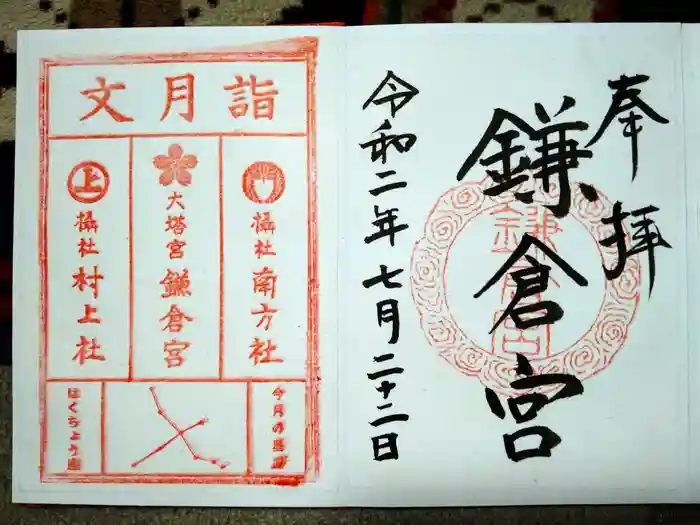 奉拝
鎌倉宮
令和二年七月二十二日
鎌倉宮
詣月文
摂社 南方社
大塔宮 鎌倉宮
上
摂社 村上社
今月の星座
はくちょう座